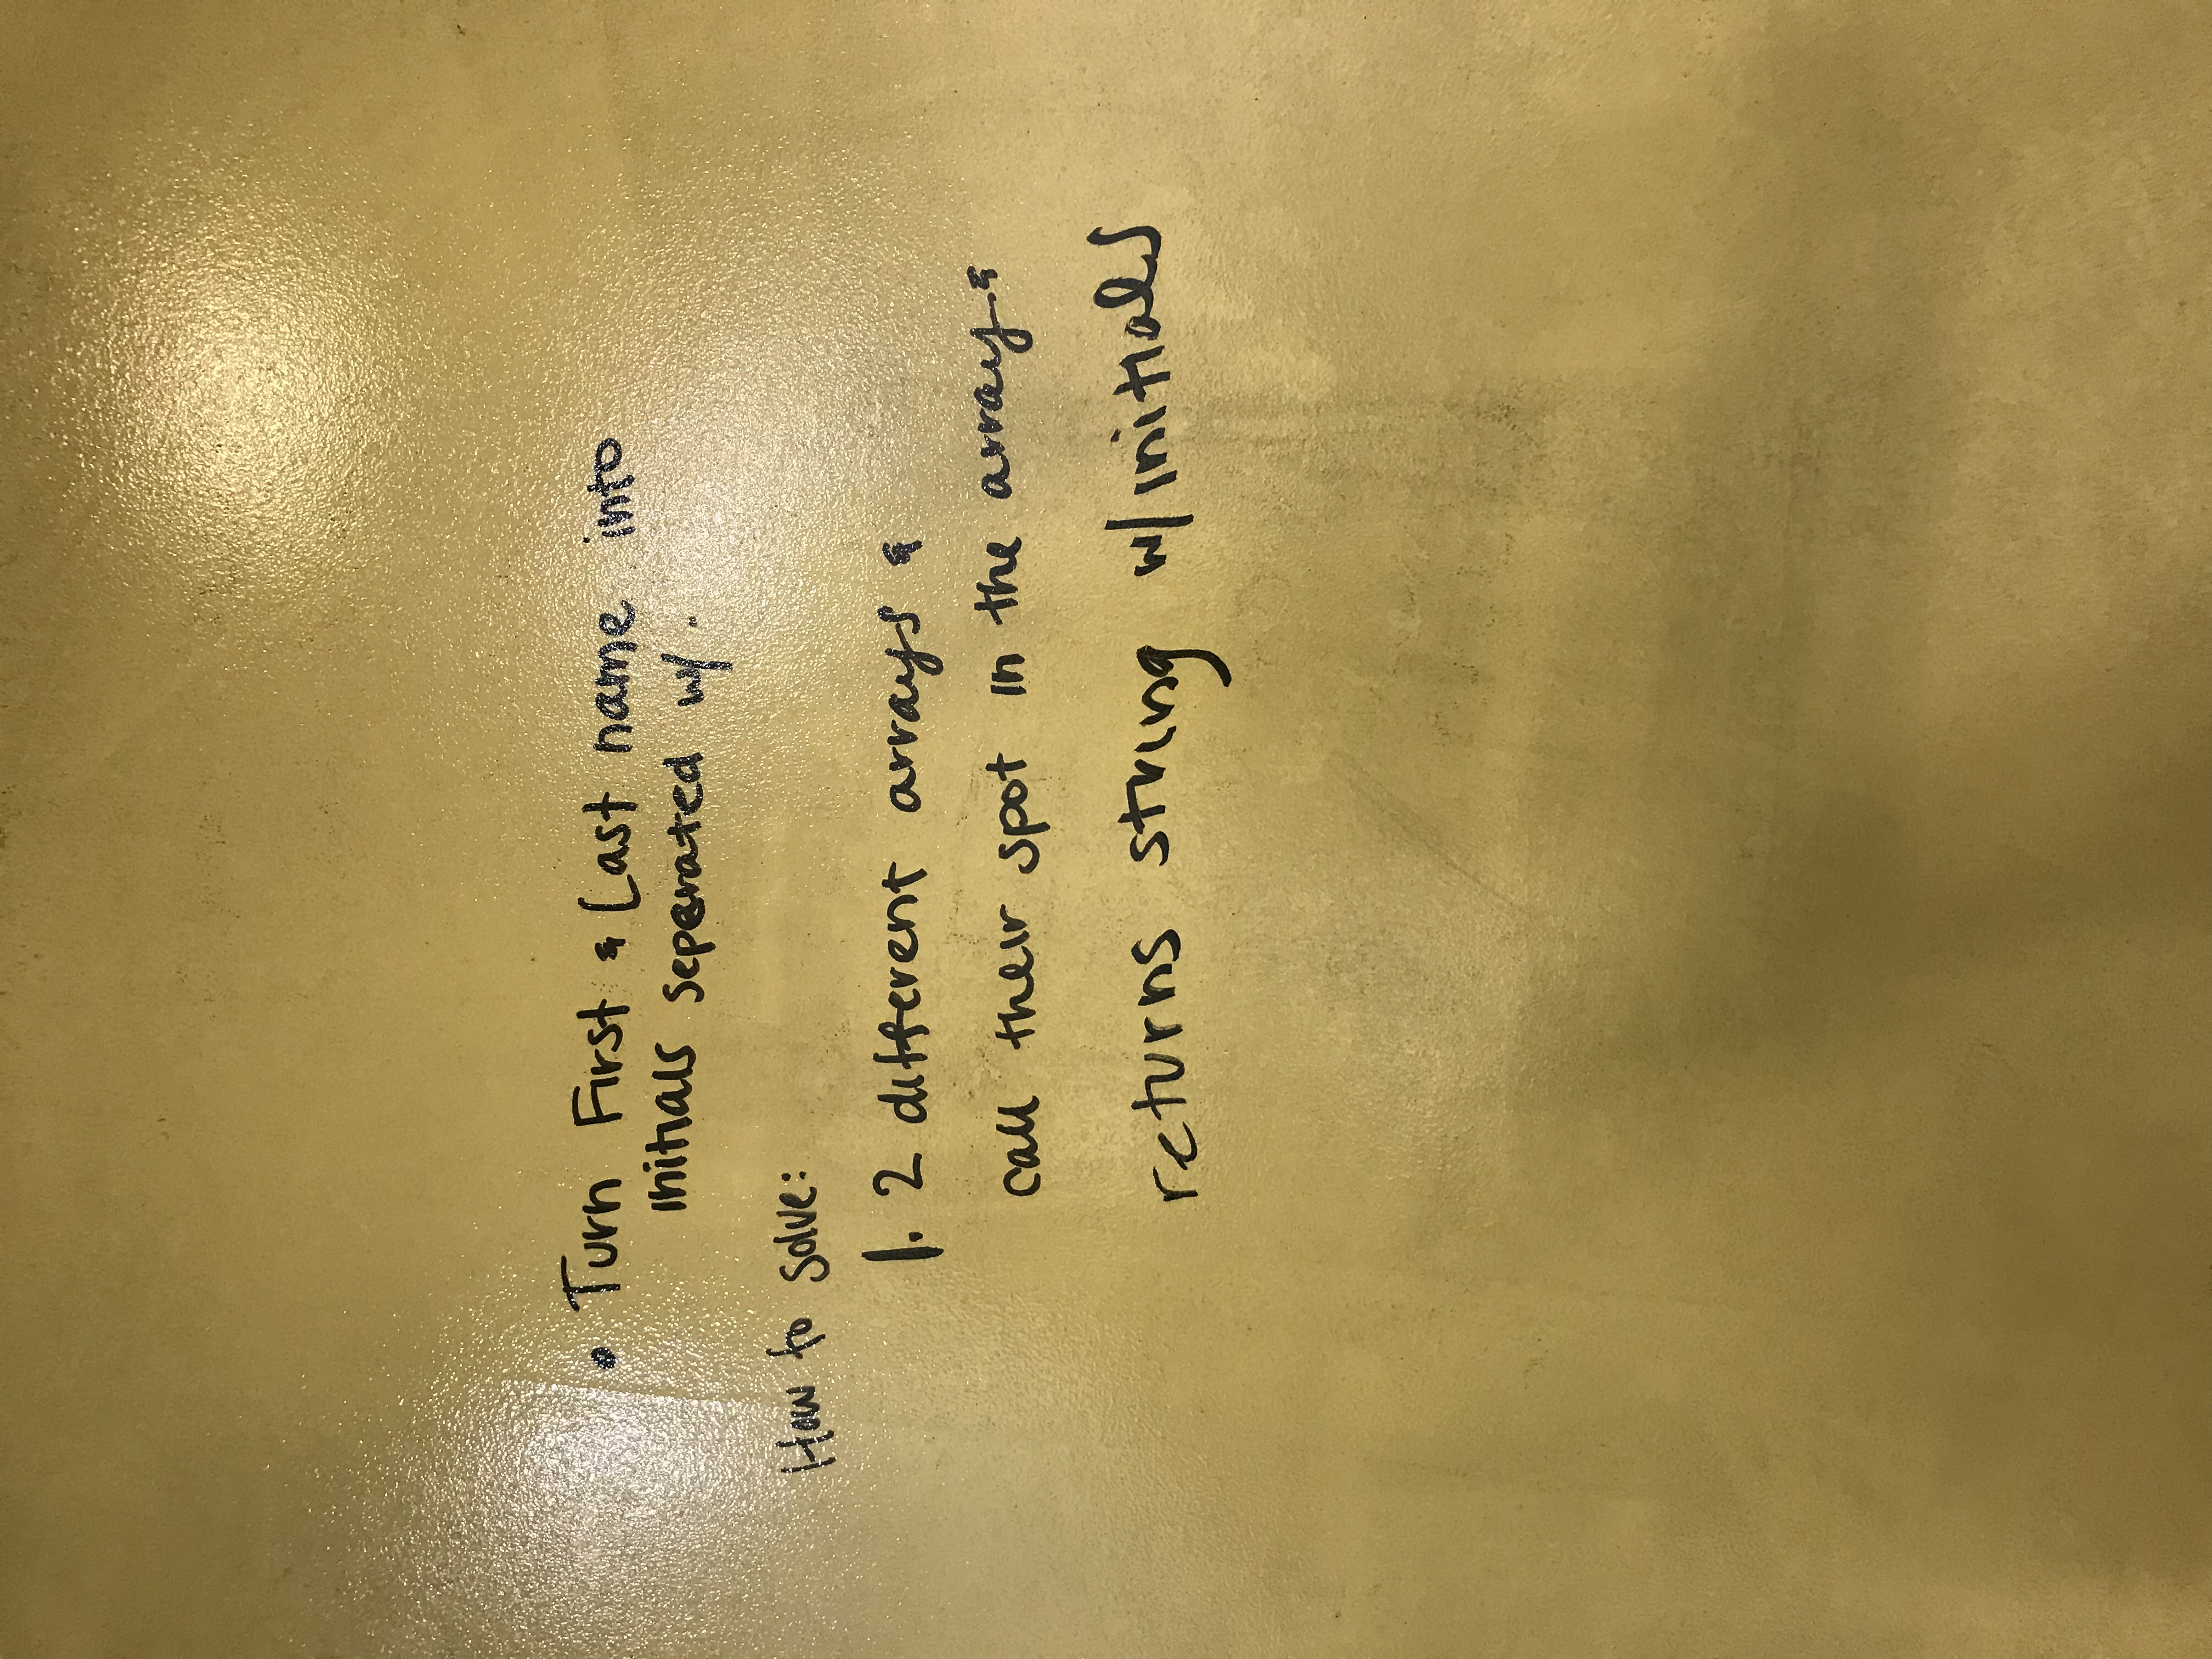 • Turn First & Last name into
initials seperated w/ .
How to solve:
1. 2 different arrays &
call their spot in the array &
returns string w/ initials